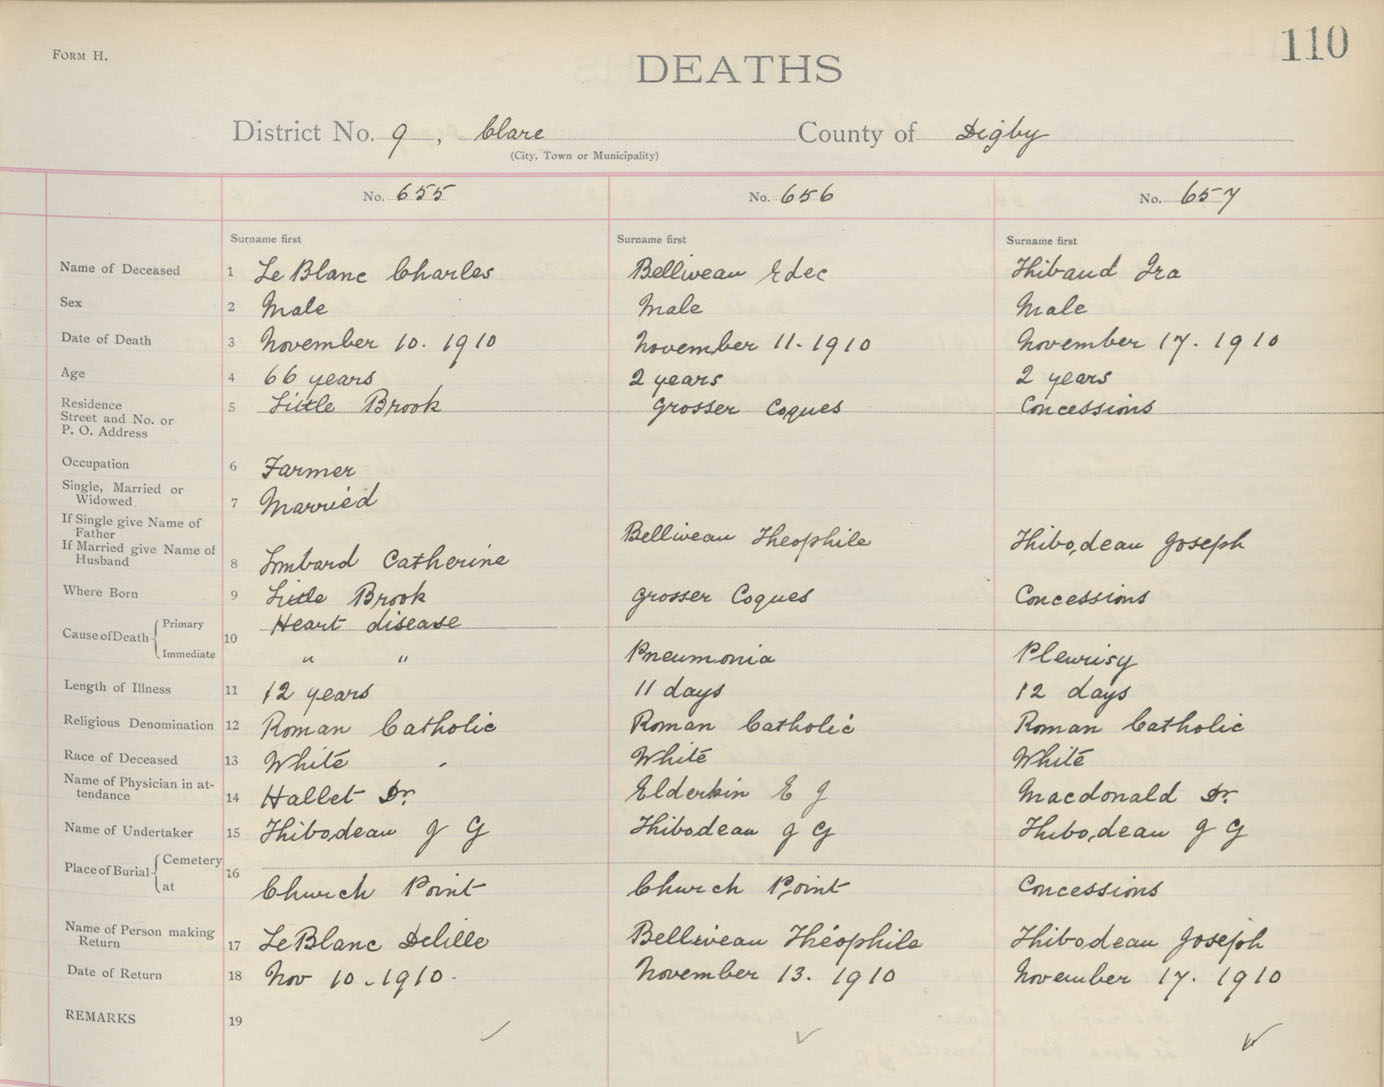 FORM H.
110
DEATHS
District No. 9, Clare County of Digby
(City, Town or Municipality)
No. 655 No. 656 No. 657
Surname first Surname first Surname first
Name of Deceased 1 Le Blanc Charles Belliveau Edec Thibaud Ira
Sex 2 Male Male Male
Date of Death 3 November 10. 1910 November 11. 1910 November 17. 1910
Age 4 66 years 2 years 2 years
Residence Street and No. or P. O. Address 5 Little Brook Grosser Coques Concessions
Occupation 6 Farmer
Single, Married or Widowed 7 Married
If Single give Name of Father Belliveau Theophile Thibodeau Joseph
If Married give Name of Husband 8 Lombard Catherine
Where Born 9 Little Brook Grosser Coques Concessions
Cause of Death 10 Primary Heart disease
Immediate " " Pneumonia Pleurisy
Length of Illness 11 12 years 11 days 12 days
Religious Denomination 12 Roman Catholic Roman Catholic Roman Catholic
Race of Deceased 13 White White White
Name of Physician in attendance 14 Hallet Dr. Elderkin E J Macdonald Dr.
Name of Undertaker 15 Thibodeau J G Thibodeau J G Thibodeau J G
Place of Burial 16 Cemetery
at Church Point Church Point Concessions
Name of Person making Return 17 LeBlanc Delille Belliveau Théophile Thibodeau Joseph
Date of Return 18 Nov 10. 1910. November 13. 1910 November 17. 1910
REMARKS 19